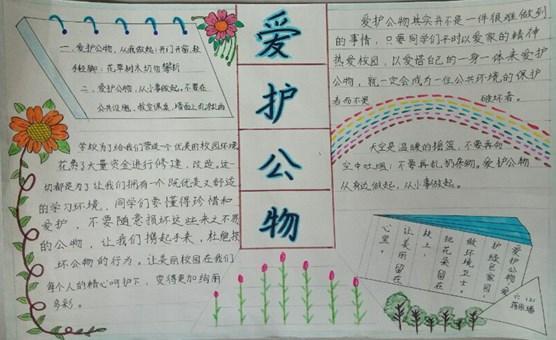 爱护公物
一、爱护公物,从我做起:开门开窗,轻
手轻脚:花草树木切勿攀折
二、爱护公物,从小事做起,不要在
公共设施、教室课桌、墙面上乱涂乱画
学校为了给我们营造一个优美的校园环境
花费了大量资金进行修建、改造,这一
切都是为了让我们拥有一个既优美又舒适
的学习环境。同学们要懂得珍惜和
爱护,不要随意损坏这些来之不易
的公物,让我们携起手来,杜绝损
坏公物的行为。让美丽校园在我们
每个人的精心呵护下,变得更加绚丽
多彩。
爱护公物其实并不是一件很难做到
的事情,只要同学们平时以爱家的精神
热爱校园,以爱惜自己的一身一体来爱护
公物,就一定会成为一位公共环境的保护
者而不是破坏者。
天空是温暖的摇篮,不要再向
空中吐烟;不要再乱扔杂物。爱护公物
从身边做起,从小事做起。
爱护公物,爱
护绿色家园,
做环境卫士。
把花朵留在
枝上,
让美丽留在
心里。